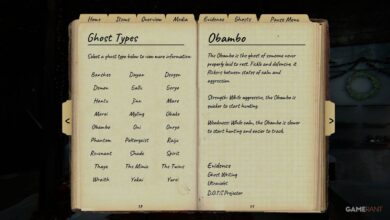 Home Items Overview Media Evidence Ghosts Pause Menu
Ghost Types
Select a ghost type below to view more information:
Banshee Dayan Deogen
Demon Gallu Goryo
Hantu Jinn Mare
Moroi Myling Obake
Obambo Oni Onryo
Phantom Poltergeist Raiju
Revenant Shade Spirit
Thaye The Mimic The Twins
Wraith Yokai Yurei
Obambo
The Obambo is the ghost of someone never
properly laid to rest. Fickle and it
flickers between states of calm and
aggression.
Strength: While aggressive, the Obambo is
quicker to start hunting.
Weakness: While calm, the Obambo is slower
to start hunting and easier to track.
Evidence
Ghost Writing
Ultraviolet
D.O.T.S Projector
GAMERANT